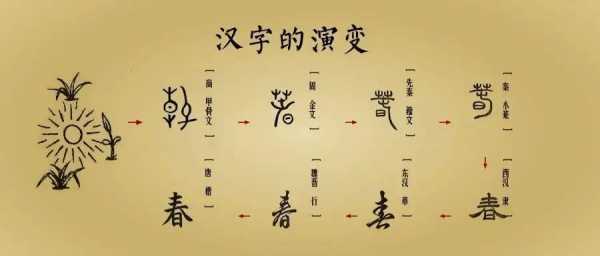 汉字的演变
春
[商 甲骨文]
春
[周 金文]
春
[先秦 籀文]
春
[秦 小篆]
春
[西汉 隶]
春
[东汉 草]
春
[魏晋 行]
春
[唐 楷]